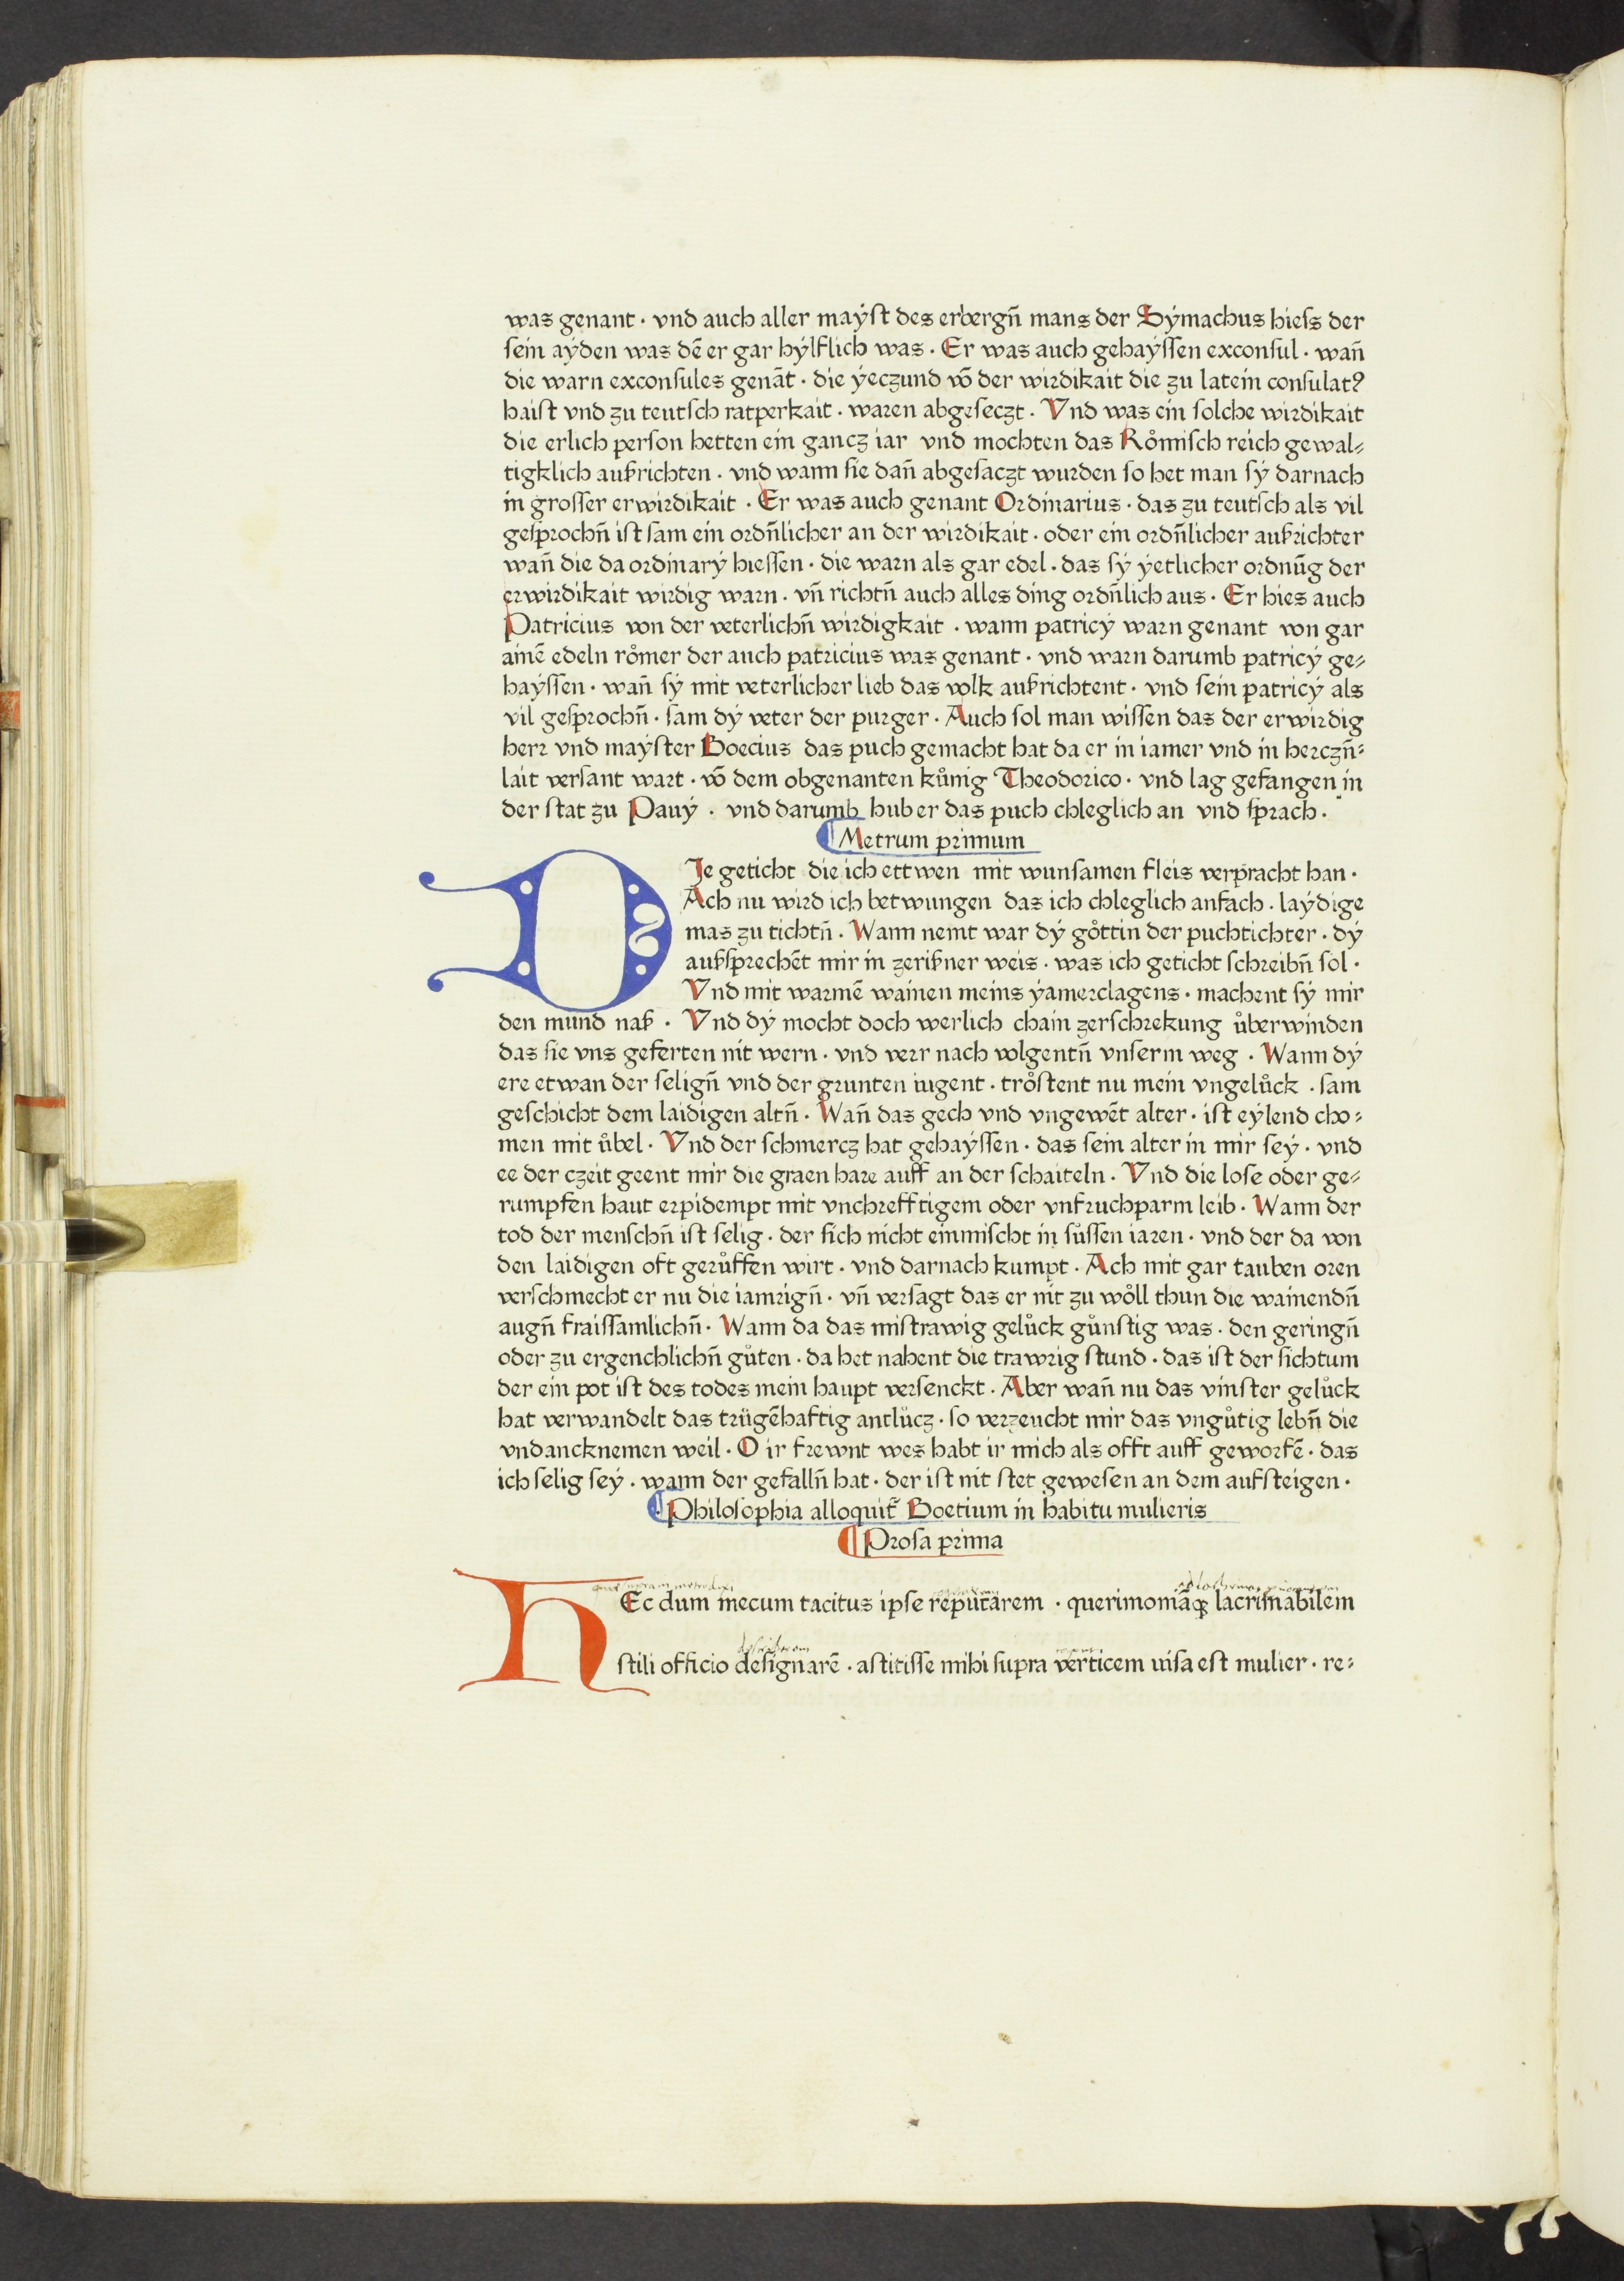 was genant · vnd auch aller maÿst des erbergn̄ mans der Sÿmachus hiess der
sein aÿden was dē er gar hÿlflich was · Er was auch gehaÿssen exconsul · wan̄
die warn exconsules genāt · die ÿeczund vō der wirdikait die zu latein consulat9
haist vnd zu teutsch ratperkait · waren abgeseczt · Vnd was ein solche wirdikait
die erlich person hetten ein gancz iar vnd mochten das Rômisch reich gewal⸗
tigklich aufrichten · vnd wann sie dan̄ abgesaczt wurden so het man sÿ darnach
in grosser erwirdikait · Er was auch genant Ordinarius · das zu teutsch als vil
gesprochn̄ ist sam ein ordn̄licher an der wirdikait · oder ein ordn̄licher aufrichter
wan̄ die da ordinarÿ hiessen · die warn als gar edel · das sÿ ÿetlicher ordnūg der
erwirdikait wirdig warn · vn̄ richtn̄ auch alles ding ordn̄lich aus · Er hies auch
Patricius von der veterlichn̄ wirdigkait · wann patricÿ warn genant von gar
ainē edeln rômer der auch patricius was genant · vnd warn darumb patricÿ ge⸗
haÿssen · wan̄ sÿ mit veterlicher lieb das volk aufrichtent · vnd sein patricÿ als
vil gesprochn̄ · sam dÿ veter der purger · Auch sol man wissen das der erwirdig
herr vnd maÿster Boecius das puch gemacht hat da er in iamer vnd in herczn̄⸗
lait versant wart · vō dem obgenanten kůnig Theodorico · vnd lag gefangen in
der stat zu Pauÿ · vnd darumb hub er das puch chleglich an vnd sprach ·
¶ Metrum primum
DJe geticht die ich ettwen mit wunsamen fleis verpracht han ·
Ach nu wird ich betwungen das ich chleglich anfach · laÿdige
mas zu tichtn̄ · Wann nemt war dÿ gôttin der puchtichter · dÿ
aufsprechēt mir in zerifner weis · was ich geticht schreibn̄ sol ·
Vnd mit warmē wainen meins ÿamerclagens · machent sÿ mir
den mund naß · Vnd dÿ mocht doch werlich chain zerschrekung ůberwinden
das sie vns geferten nit wern · vnd verr nach volgentn̄ vnserm weg · Wann dÿ
ere etwan der selign̄ vnd der grunten iugent · trôstent nu mein vngelůck · sam
geschicht dem laidigen altn̄ · Wan̄ das gech vnd vngewēt alter · ist eÿlend cho⸗
men mit ůbel · Vnd der schmercz hat gehaÿssen · das sein alter in mir seÿ · vnd
ee der czeit geent mir die graen hare auff an der schaiteln · Vnd die lose oder ge⸗
rumpfen haut erpidempt mit vnchrefftigem oder vnfruchparm leib · Wann der
tod der menschn̄ ist selig · der sich nicht einmischt in sůssen iaren · vnd der da von
den laidigen oft gerůffen wirt · vnd darnach kumpt · Ach mit gar tauben oren
verschmecht er nu die iamrign̄ · vn̄ versagt das er nit zu wôll thun die wainendn̄
augn̄ fraissamlichn̄ · Wann da das mistrawig gelůck gůnstig was · den geringn̄
oder zu ergenchlichn̄ gůten · da het nahent die trawrig stund · das ist der sichtum
der ein pot ist des todes mein haupt versenckt · Aber wan̄ nu das vinster gelůck
hat verwandelt das trügēhaftig antlůcz · so verzeucht mir das vngůtig lebn̄ die
vndancknemen weil · O ir frewnt wes habt ir mich als offt auff geworfē · das
ich selig seÿ · wann der gefalln̄ hat · der ist nit stet gewesen an dem aufsteigen ·
¶ Philosophia alloquit̄ Boetium in habitu mulieris
¶ Prosa prima
HEc dum mecum tacitus ipse reputarem · querimoniāꝗ lacrimabilem
describerem
stili officio designarē · astitisse mihi supra verticem uisa est mulier · re⸗